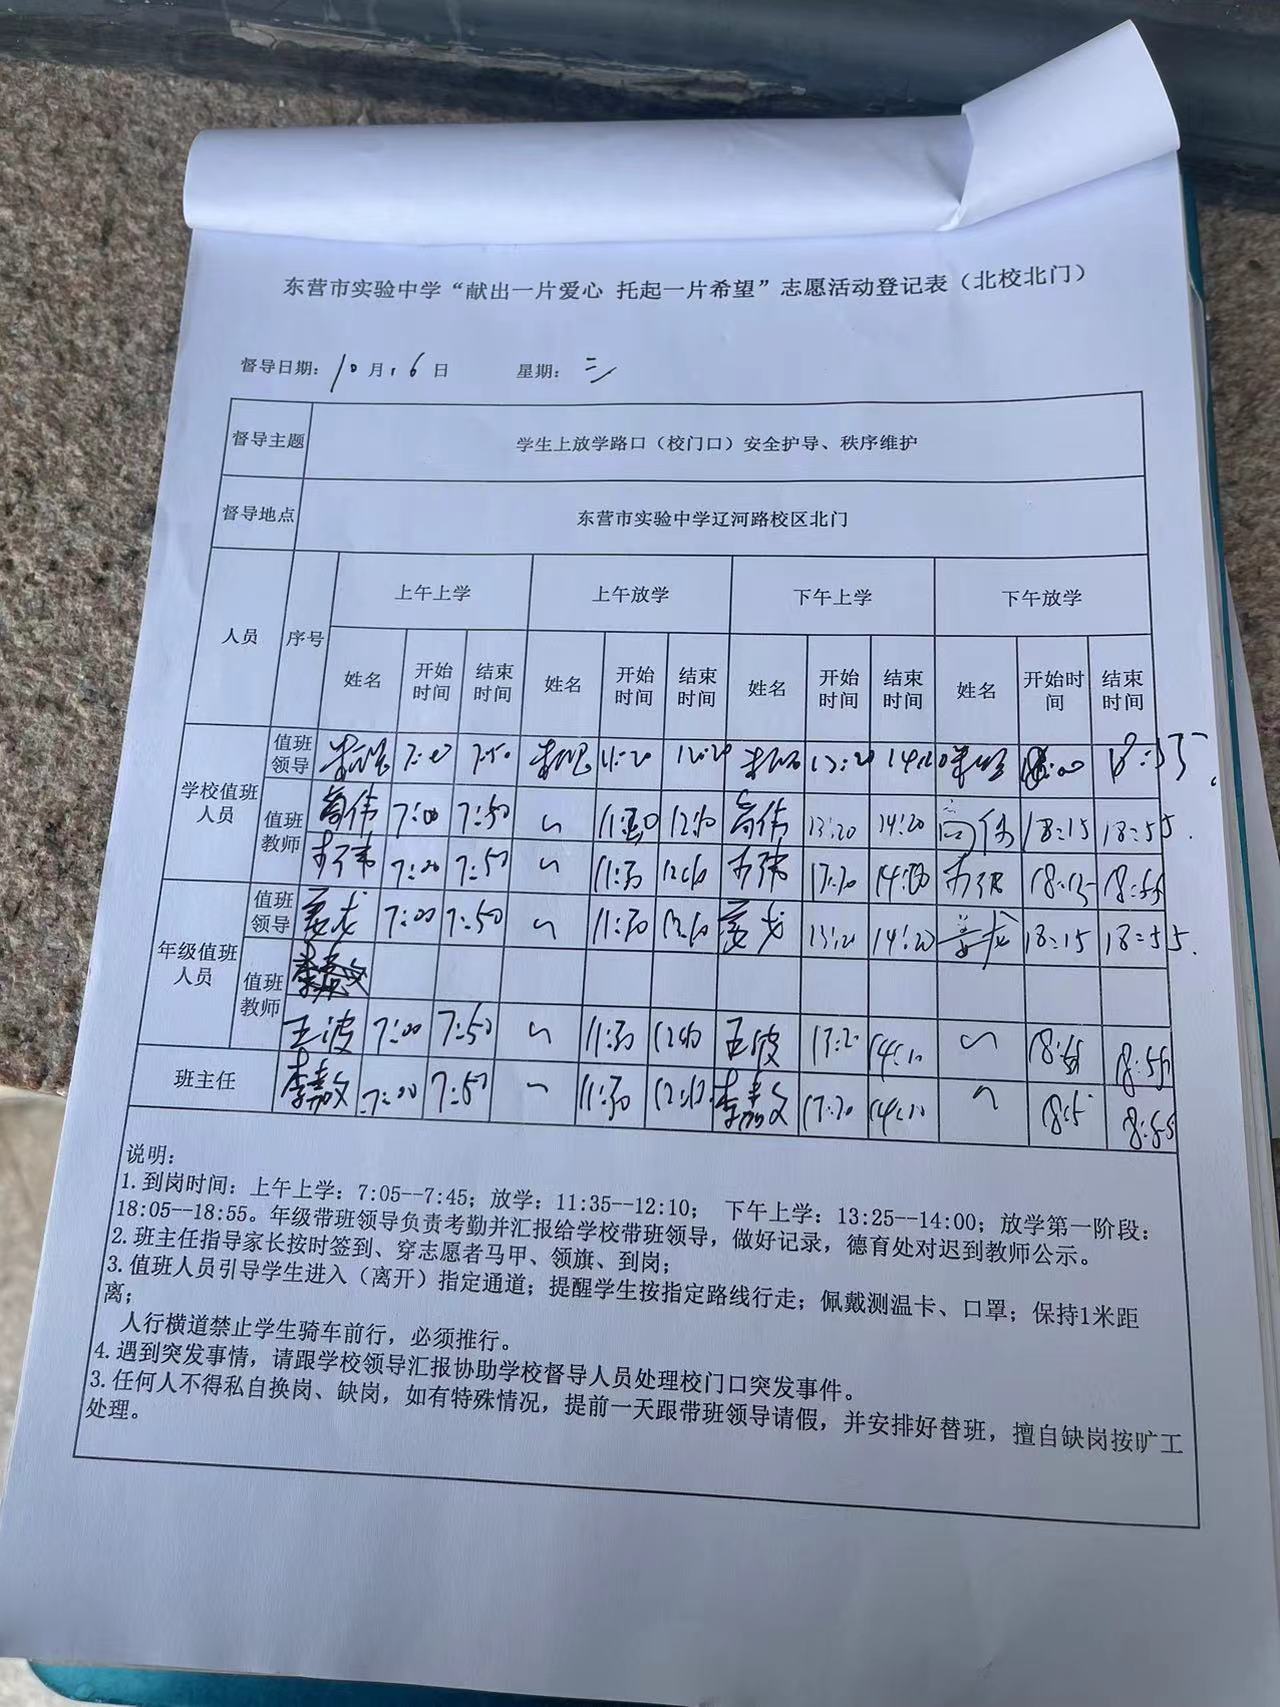 东营市实验中学“献出一片爱心 托起一片希望”志愿活动登记表（北校北门）
督导日期：10月16日 星期：三
督导主题 学生上放学路口（校门口）安全护导、秩序维护
督导地点 东营市实验中学辽河路校区北门
人员 序号 上午上学 上午放学 下午上学 下午放学
姓名 开始时间 结束时间 姓名 开始时间 结束时间 姓名 开始时间 结束时间 姓名 开始时间 结束时间
学校值班人员 值班领导 7:50 11:20 12:20 13:20 14:20 18:55
值班教师 高伟 7:00 7:50 〜 12:10 高伟 13:20 14:20 高伟 18:15 18:55
7:00 7:50 〜 11:30 12:10 18:15 18:55
年级值班人员 值班领导 姜龙 7:00 7:50 〜 11:30 12:10 姜龙 13:20 14:20 姜龙 18:15 18:55
值班教师
王波 7:00 7:50 〜 11:30 12:10 王波 13:20 14:10 〜 18:55
班主任 李嘉文 7:00 7:50 〜 11:30 12:10 李嘉文 13:20 14:10 〜 18:55
说明：
1.到岗时间：上午上学：7:05--7:45；放学：11:35--12:10； 下午上学：13:25--14:00；放学第一阶段：
18:05--18:55。年级带班领导负责考勤并汇报给学校带班领导，做好记录，德育处对迟到教师公示。
2.班主任指导家长按时签到、穿志愿者马甲、领旗、到岗；
3.值班人员引导学生进入（离开）指定通道；提醒学生按指定路线行走；佩戴测温卡、口罩；保持1米距
离；
人行横道禁止学生骑车前行，必须推行。
4.遇到突发事情，请跟学校领导汇报协助学校督导人员处理校门口突发事件。
3.任何人不得私自换岗、缺岗，如有特殊情况，提前一天跟带班领导请假，并安排好替班，擅自缺岗按旷工
处理。